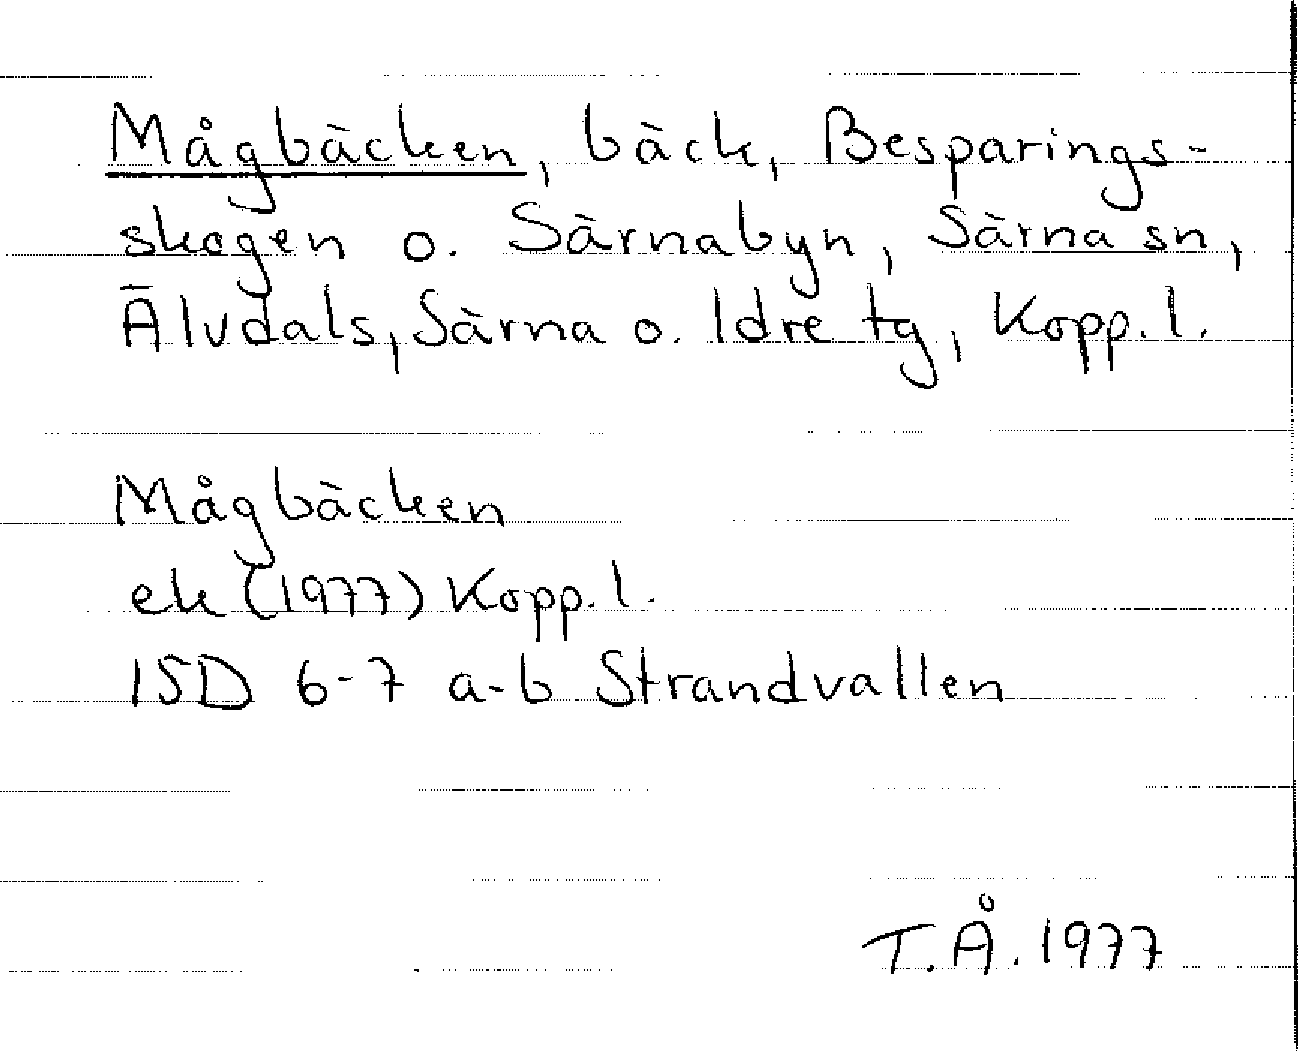 Mågbäcken, bäck, Besparings-
skogen o. Särnabyn, Särna sn,
Älvdals, Särna o. Idre tg, Kopp. l.
Mågbäcken
ek (1977) Kopp. l.
15D 6-7 a-b Strandvallen
T.Å. 1977